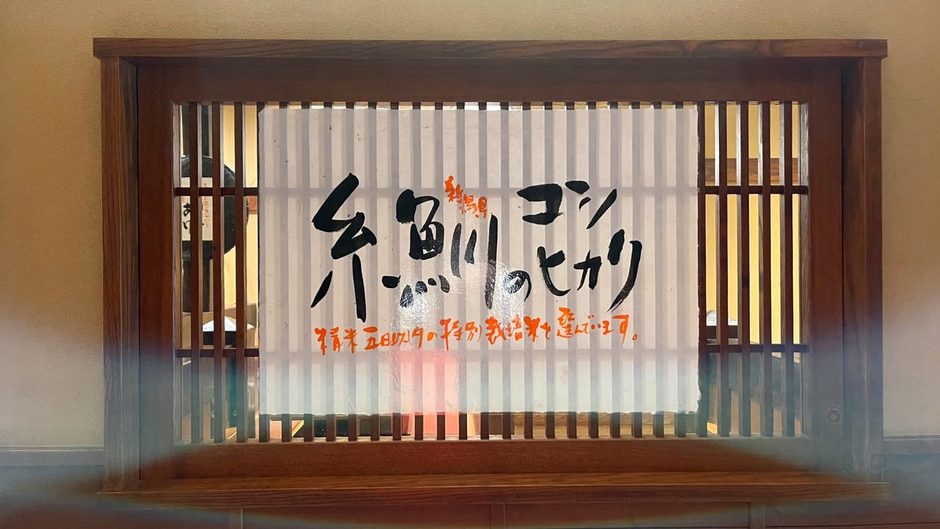 新潟県
糸魚川のコシヒカリ
精米五日以内の特別栽培米を選んでいます。